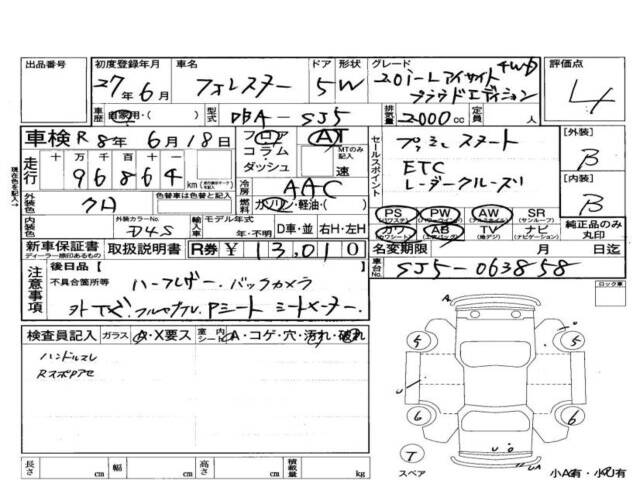 出品番号
初度登録年月
27年6月
車名
フォレスター
ドア 形状
5 W
グレード
2.0i-L アイサイト 4WD
プラウドエディション
評価点
4
車歴 自家用・
型式 DBA-SJ5
排気量 2000 cc
定員 人
車検 R8年6月18日
走行 十万千百十一
96864 km
フロア
コラム・
ダッシュ
AT
MTのみ記入
速
冷房 AAC
燃料 ガソリン・軽油・( )
外装色 クロ
色替車は色替前
セールスポイント
プッシュスタート
ETC
レーダークルーズ
[外装] B
[内装] B
内装色
外装カラーNo. D4S
輸入車
モデル年式
年・不明
D車・並 右H・左H
PS PW AW SR(サンルーフ)
カワ AB TV(地デジ) ナビ(ナビゲーション)
純正品のみ丸印
新車保証書 取扱説明書
ディーラー捺印あるもの
R券 ¥ 13,010
名変期限 月 日迄
車台No. SJ5-063858
注意事項
後日品[ ]
不具合箇所等
ハーフレザー. バックカメラ
シートヒーター.
ロック車
検査員記入 ガラス A・X要ス 室内シート A・コゲ・穴・汚れ・破れ
ハンドルスレ
A
5
5
6
6
U
U
UA
T
スペア
長さ cm 幅 cm 高さ cm 積載量 kg
小A有・小U有
現在色を記入→